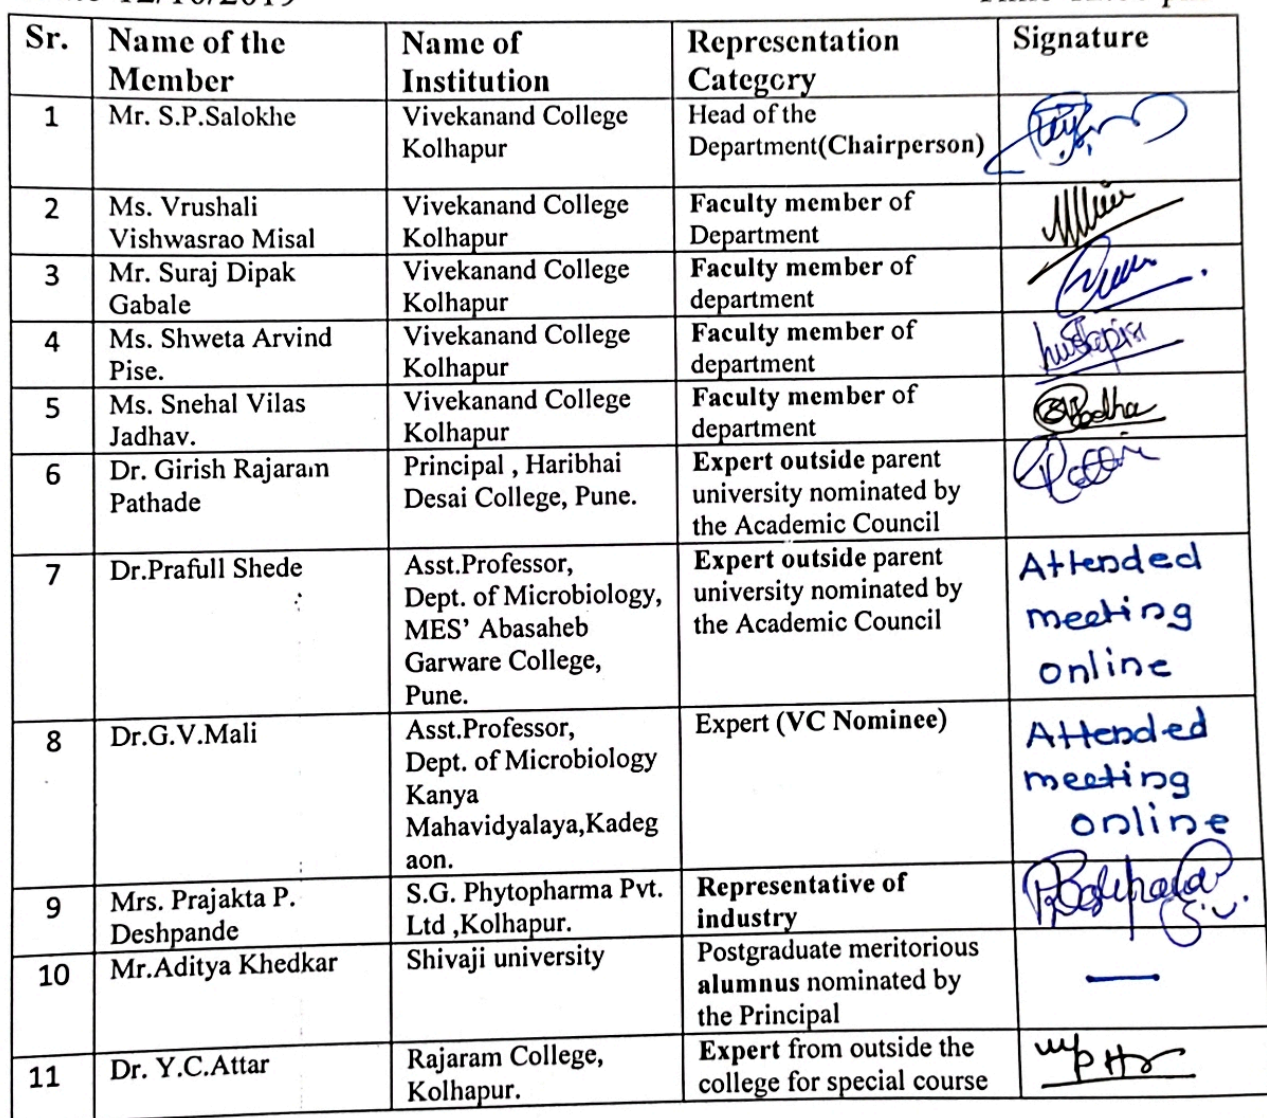 12/10/2019
Sr. Name of the Member Name of Institution Representation Category Signature
1 Mr. S.P.Salokhe Vivekanand College Kolhapur Head of the Department(Chairperson)
2 Ms. Vrushali Vishwasrao Misal Vivekanand College Kolhapur Faculty member of Department
3 Mr. Suraj Dipak Gabale Vivekanand College Kolhapur Faculty member of department
4 Ms. Shweta Arvind Pise. Vivekanand College Kolhapur Faculty member of department
5 Ms. Snehal Vilas Jadhav. Vivekanand College Kolhapur Faculty member of department
6 Dr. Girish Rajaram Pathade Principal , Haribhai Desai College, Pune. Expert outside parent university nominated by the Academic Council
7 Dr.Prafull Shede Asst.Professor, Dept. of Microbiology, MES' Abasaheb Garware College, Pune. Expert outside parent university nominated by the Academic Council Attended meeting online
8 Dr.G.V.Mali Asst.Professor, Dept. of Microbiology Kanya Mahavidyalaya,Kadeg aon. Expert (VC Nominee) Attended meeting online
9 Mrs. Prajakta P. Deshpande S.G. Phytopharma Pvt. Ltd ,Kolhapur. Representative of industry
10 Mr.Aditya Khedkar Shivaji university Postgraduate meritorious alumnus nominated by the Principal —
11 Dr. Y.C.Attar Rajaram College, Kolhapur. Expert from outside the college for special course